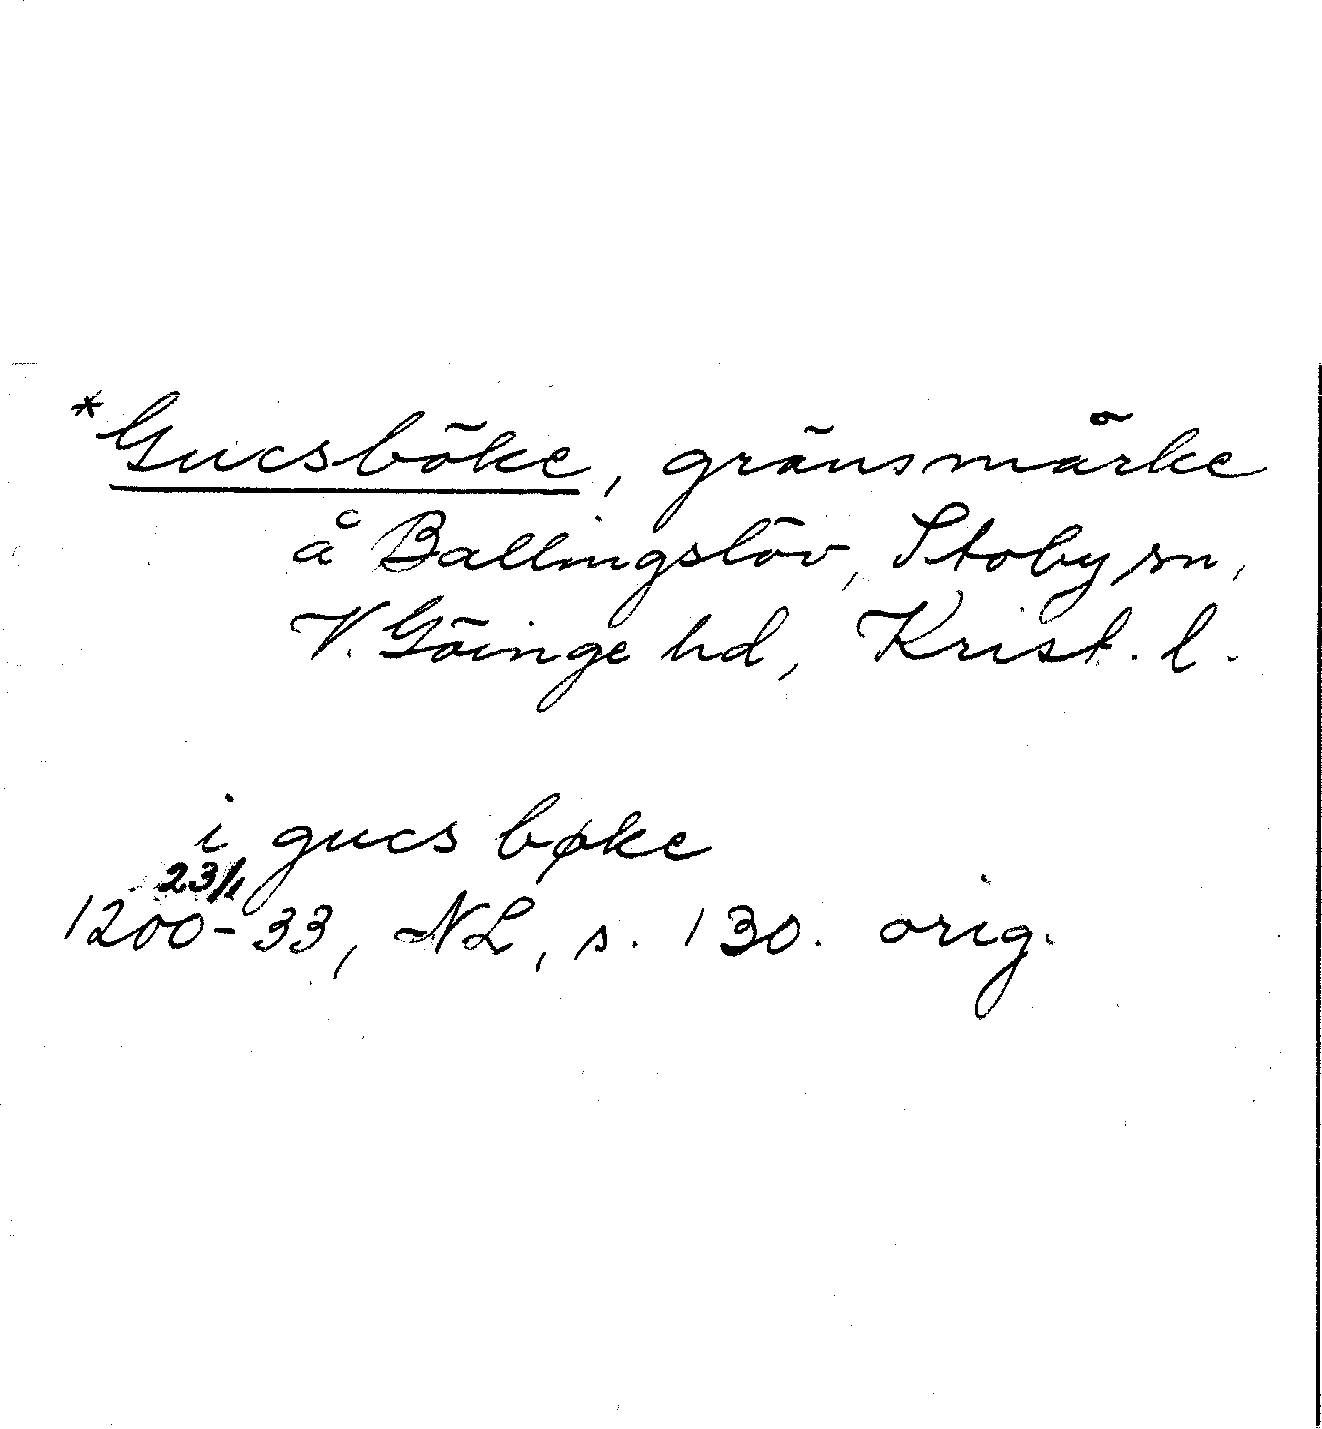 *Gucsböke, gränsmärke
å Ballingslöv, Stoby sn,
V. Göinge hd, Krist. l.
i gucs bøke
23/1
1200-33, NL, s. 130. orig.